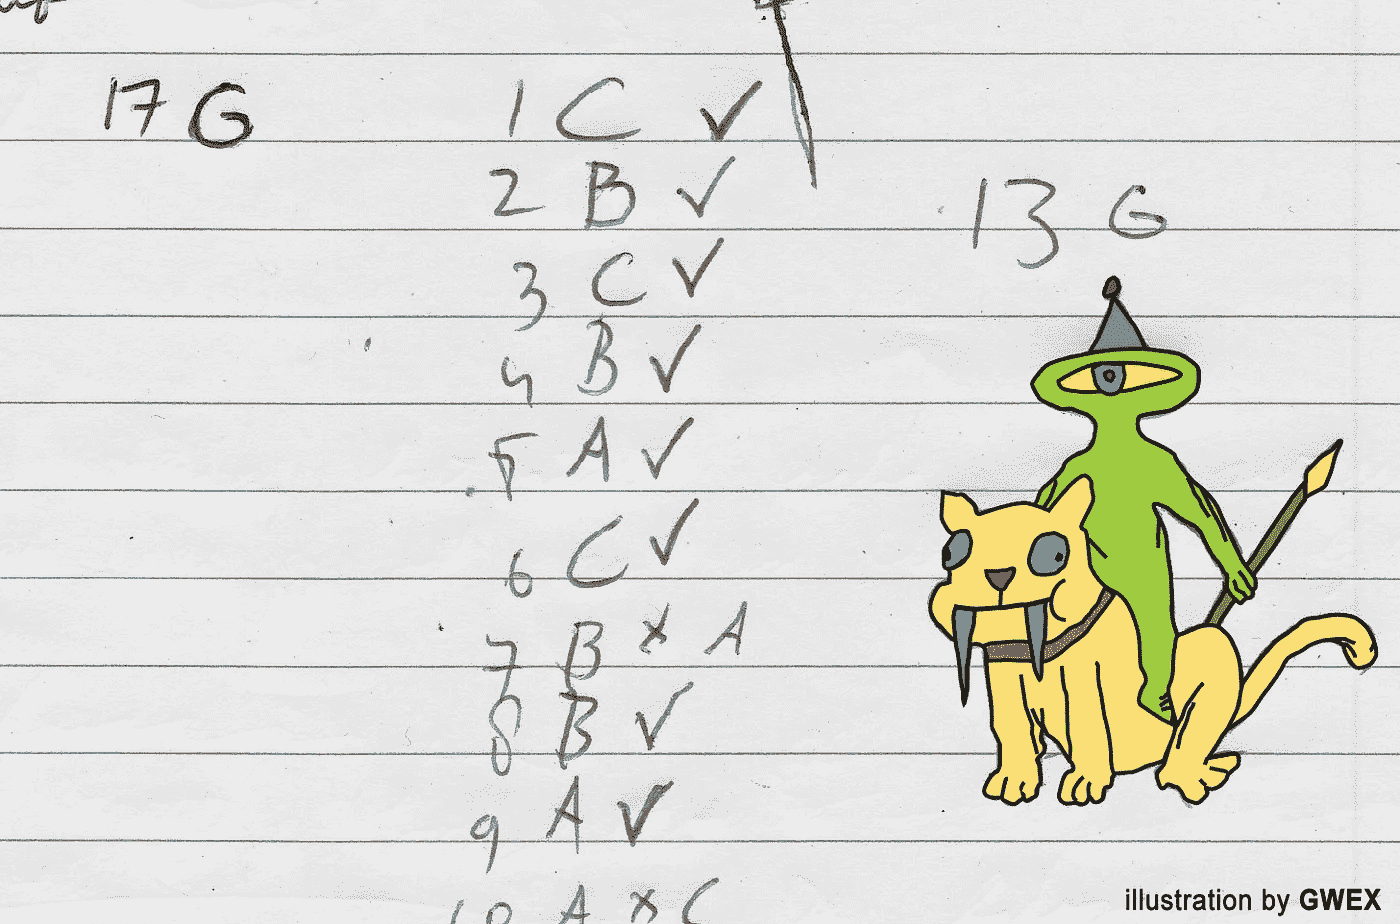 17 G
1 C ✓
2 B ✓
13 G
3 C ✓
4 B ✓
5 A ✓
6 C ✓
7 B x A
8 B ✓
9 A ✓
10 A x C
illustration by GWEX